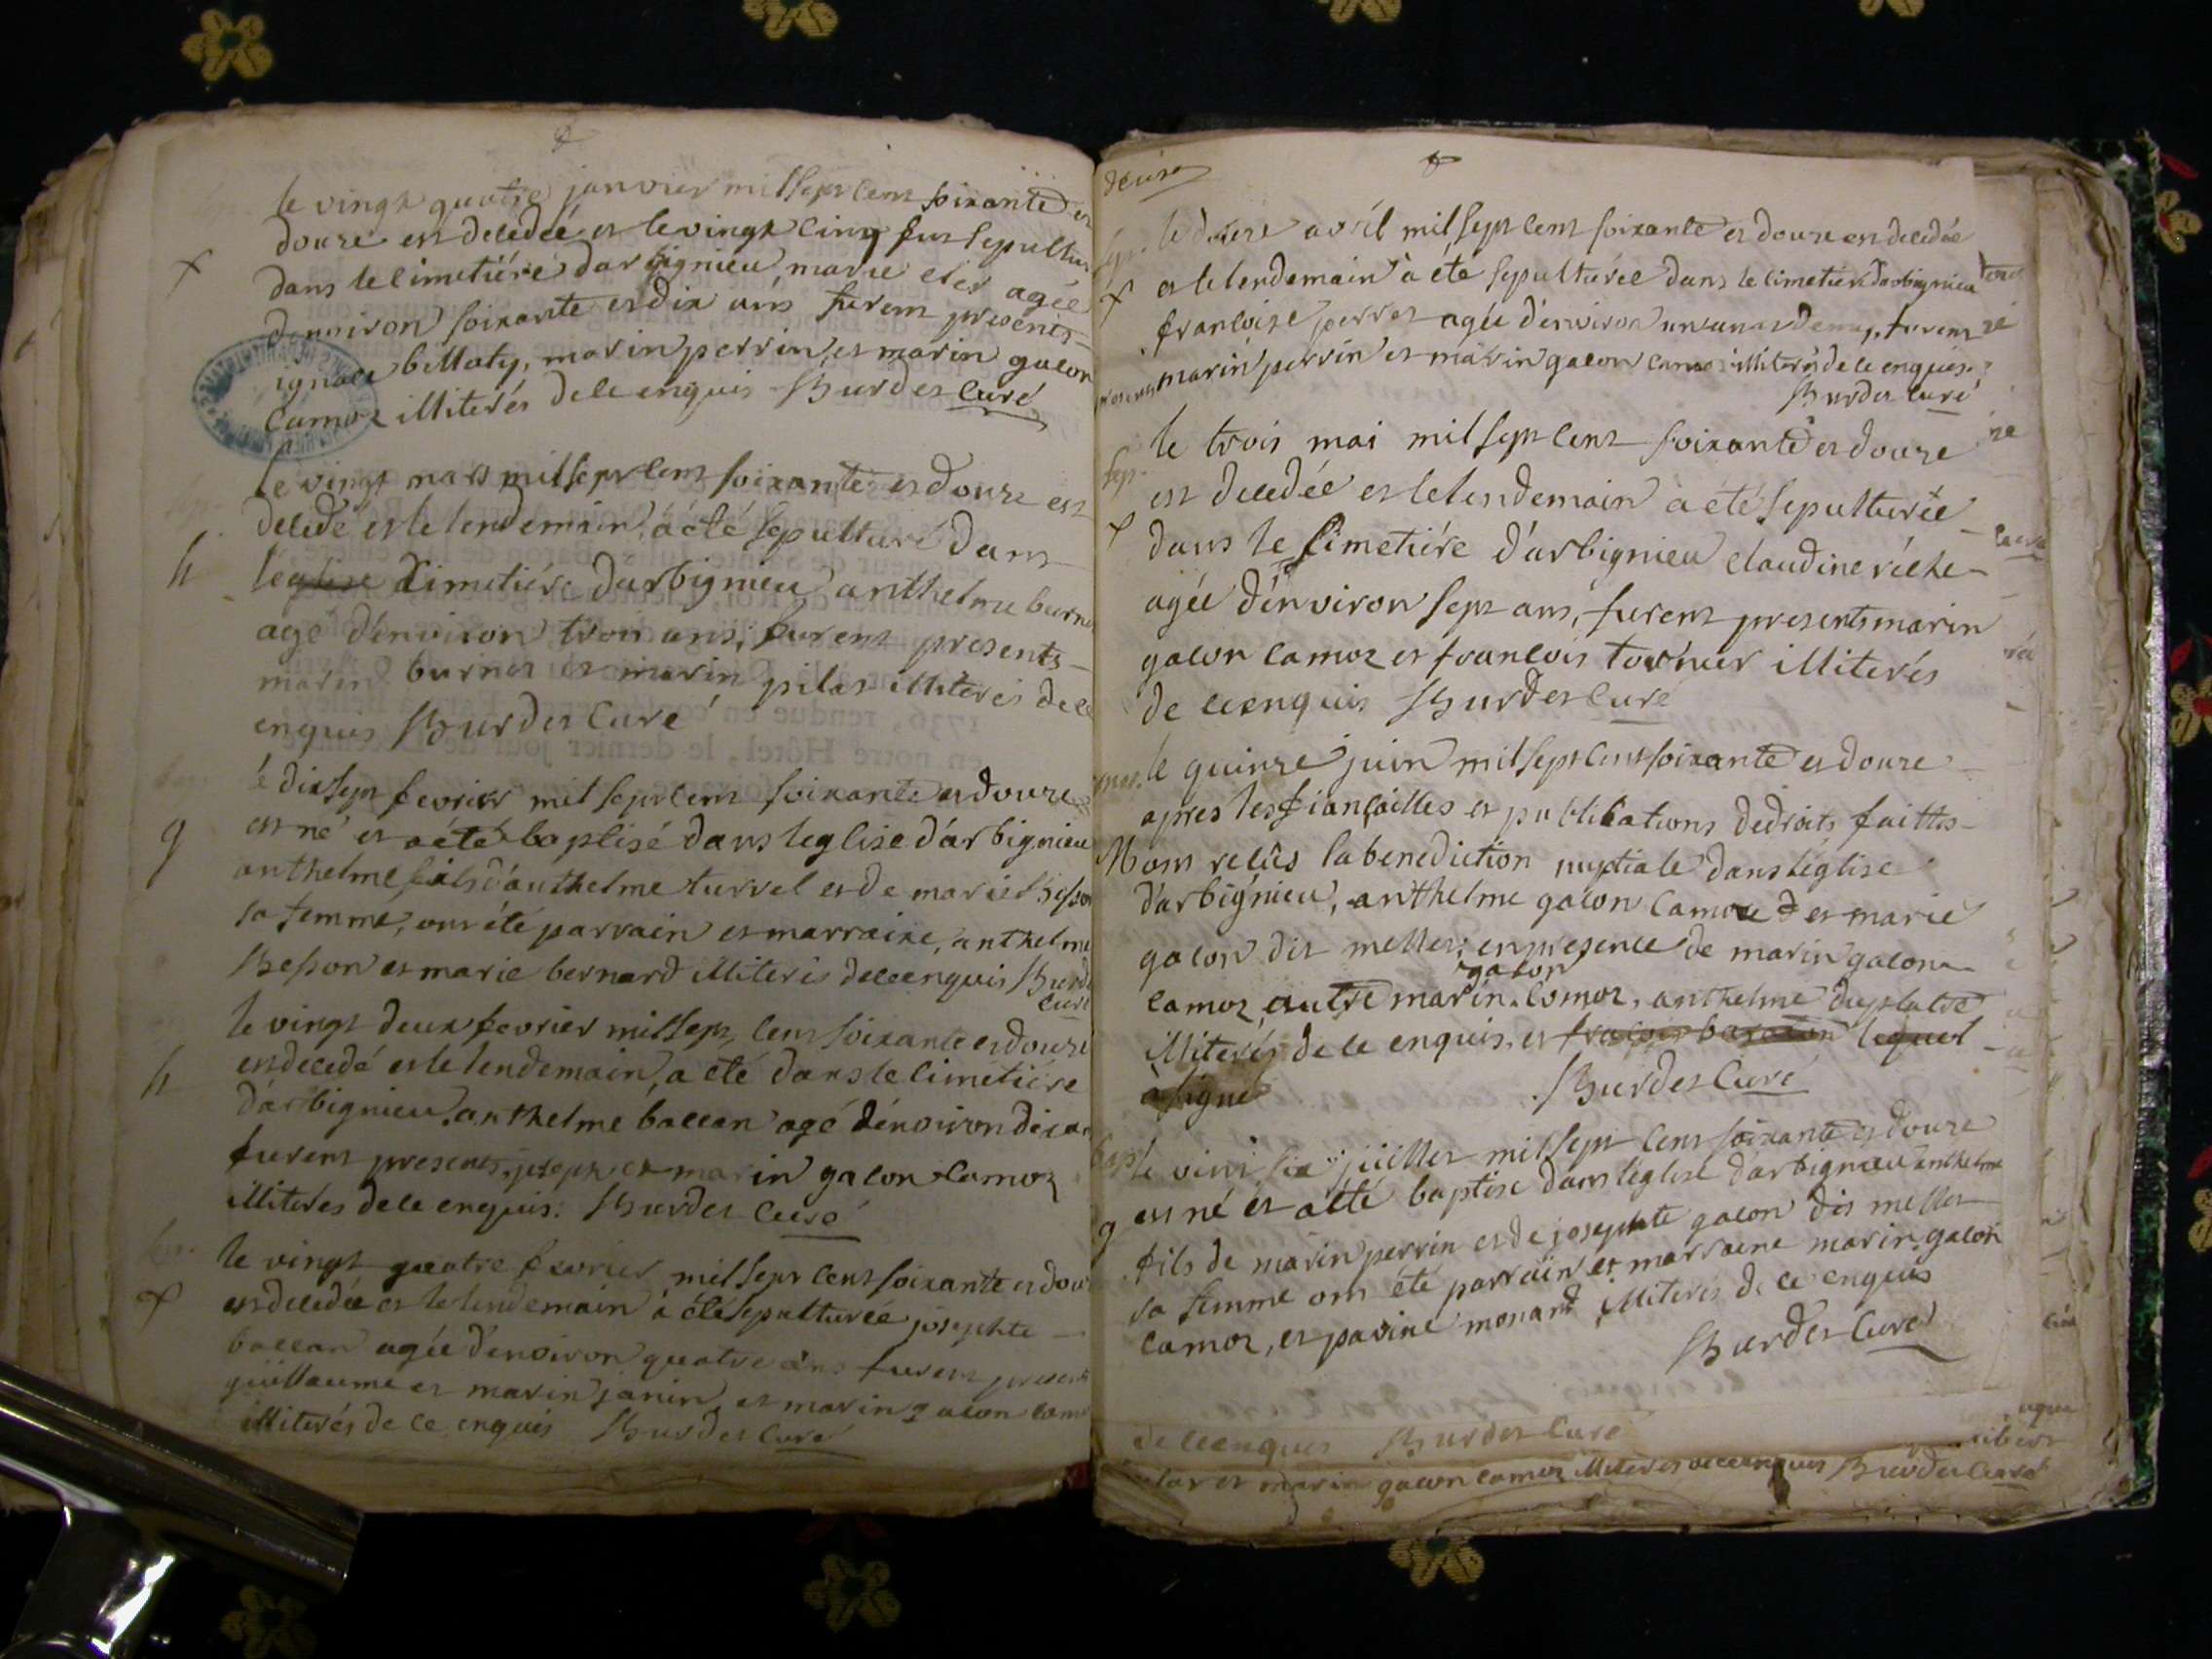 le vingt quatre janvier mil sept cent soixante et
douze est decedée et le vingt cinq fut sepultur
dans le cimetiére darbignieu marie agée
denviron soixante et dix ans furent presents
ignace bellaty, marin perrin, et marin galon
Camoz illiterés de ce enquis Burdet Curé
le vingt mars mil sept cent soixante et douze est
decedé et le lendemain, a été sepulturé dans
h
l'eglise Cimetiére darbignieu anthelme burnet
agé d'environ trois ans; furent presents
marin burnet et marin pilat illiterés de ce
enquis Burdet Curé
le dix sept fevrier mil sept cent soixante et douze
g
est né et a été baptisé dans leglise d'arbignieu
anthelme fils d'anthelme turrel et de marie Besson
sa femme, ont été parrain et marraine, anthelme
Besson et marie bernard illiterés de ce enquis Burdet
Curé
le vingt deux fevrier mil sept cent soixante et douze
h
est decedé et le lendemain, a été dans le cimetiére
d'arbignieu anthelme ballan agé d'environ dix an
furent presents joseph et marin galon Camoz
illiterés de ce enquis. Burdet Curé
le vingt quatre fevrier mil sept cent soixante et douz
f
est decedée et le lendemain a été sepulturée josephte
ballan agée d'environ quatre ans furent present
guillaume et marin janin, et marin galon Camo
illiterés de ce enquis Burdet Curé
sep.
le avril mil sept cent soixante et douze est decedée
f
et le lendemain a été sepulturée dans le cimetiére darbignieu
francoise perret agée d'environ un an et demy, furent
presents marin perrin et marin galon camoz illiterés de ce enquis
Burdet Curé
sep.
le trois mai mil sept cent soixante et douze
est decedée et le lendemain a été sepulturée
f
dans le Cimetiére d'arbignieu claudine réche
agée d'environ sept ans, furent presents marin
galon Camoz et francois tournier illiterés
de ce enquis Burdet Curé
mar.
le quinze juin mil sept cent soixante et douze
apres les fiancailles et publications de droits faittes
Nom ont recûs la benediction nuptiale dans léglise
d'arbignieu, anthelme galon Camoz et marie
galon dit mellet; en presence de marin galon
Camoz, autre marin galon Comoz, anthelme duplatre
illiterés de ce enquis, et francois lequel
a signé
Burdet Curé
bap.
le vint six juillet mil sept cent soixante et douze
g
est né et a été baptisé dans léglise d'arbignieu anthelme
fils de marin perrin et de josephte galon dit mellet
sa femme ont été parrain et marraine marin galon
Camoz, et pavine monard illiterés de ce enquis
Burdet Curé
de ce enquis Burdet Curé
et marin galon Camoz illiterés de ce enquis Burdet Curé